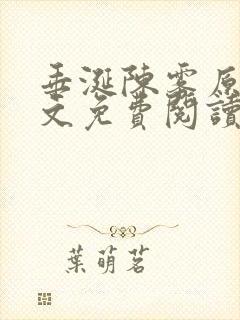 垂涎陳霧原
文免費閱讀
葉萌茗